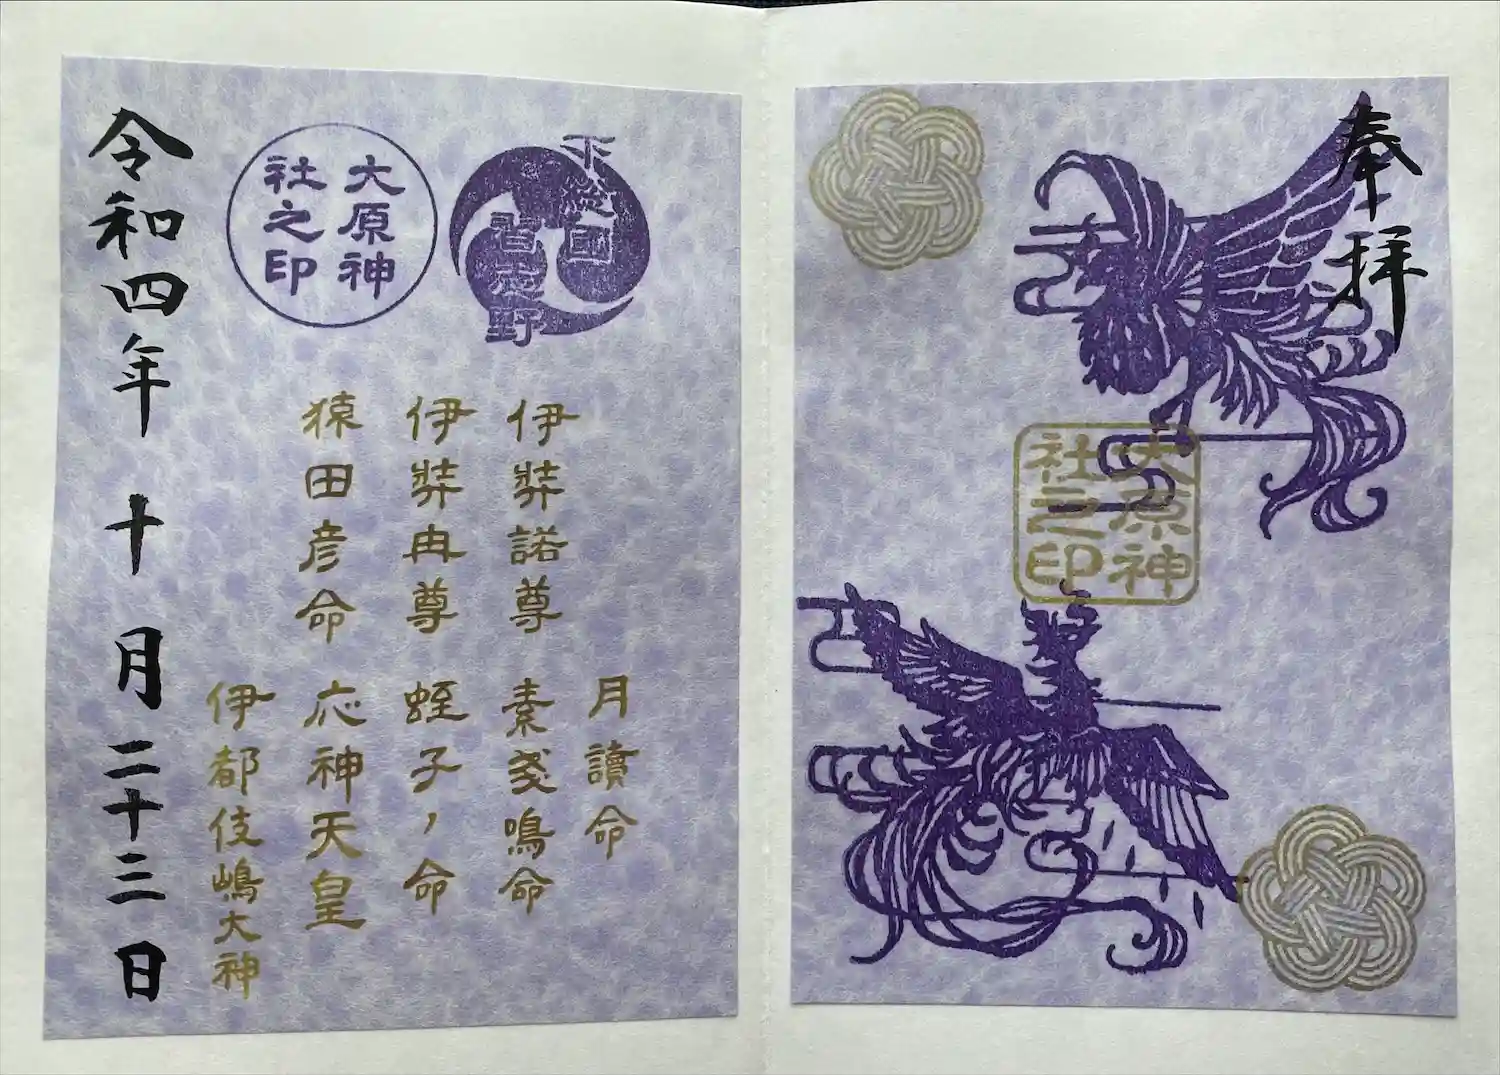 奉拝
大原神
社之印
下總國
習志野
大原神
社之印
月讀命
伊弉諾尊
素戔鳴命
伊弉冉尊
蛭子ノ命
猿田彦命
応神天皇
伊都伎嶋大神
令和四年十月二十三日